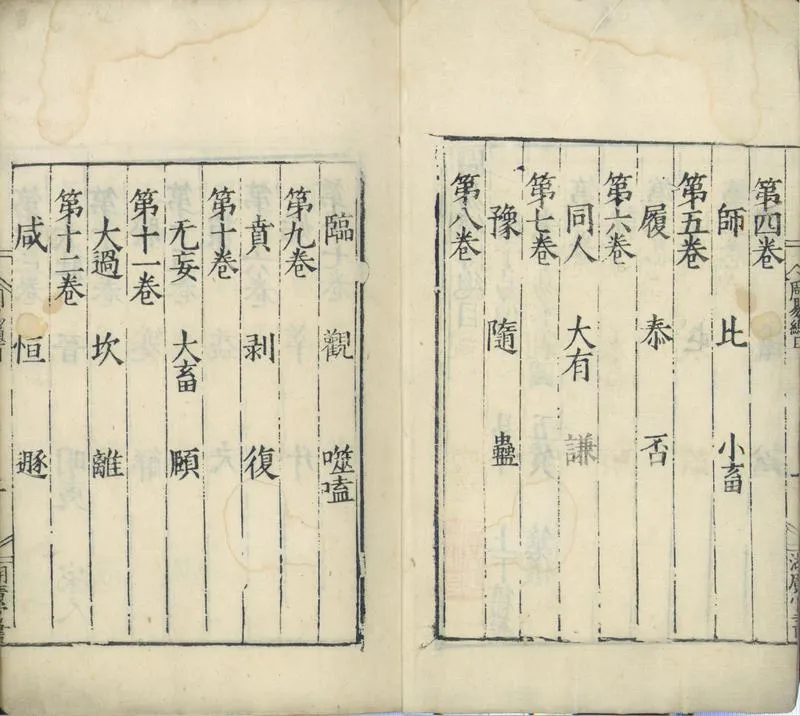 第四卷
師 比 小畜
第五卷
履 泰 否
第六卷
同人 大有 謙
第七卷
豫 隨 蠱
第八卷
臨 觀 噬嗑
第九卷
賁 剥 復
第十卷
无妄 大畜 頤
第十一卷
大過 坎 離
第十二卷
咸 恒 遯